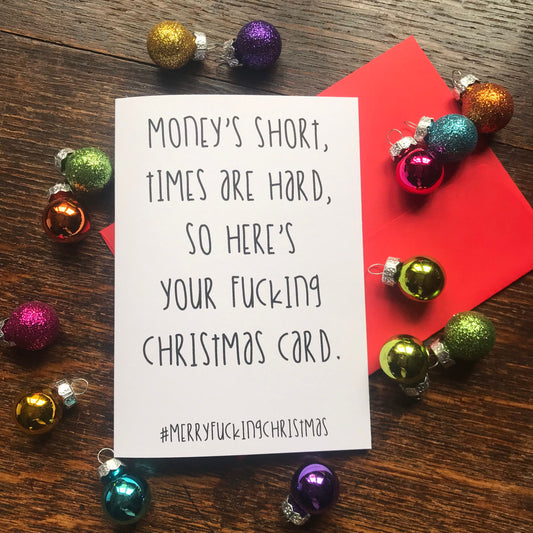 MONEY'S SHORT,
TIMES ARE HARD,
SO HERE'S
YOUR FUCKING
CHRISTMAS CARD.
#MERRYFUCKINGCHRISTMAS